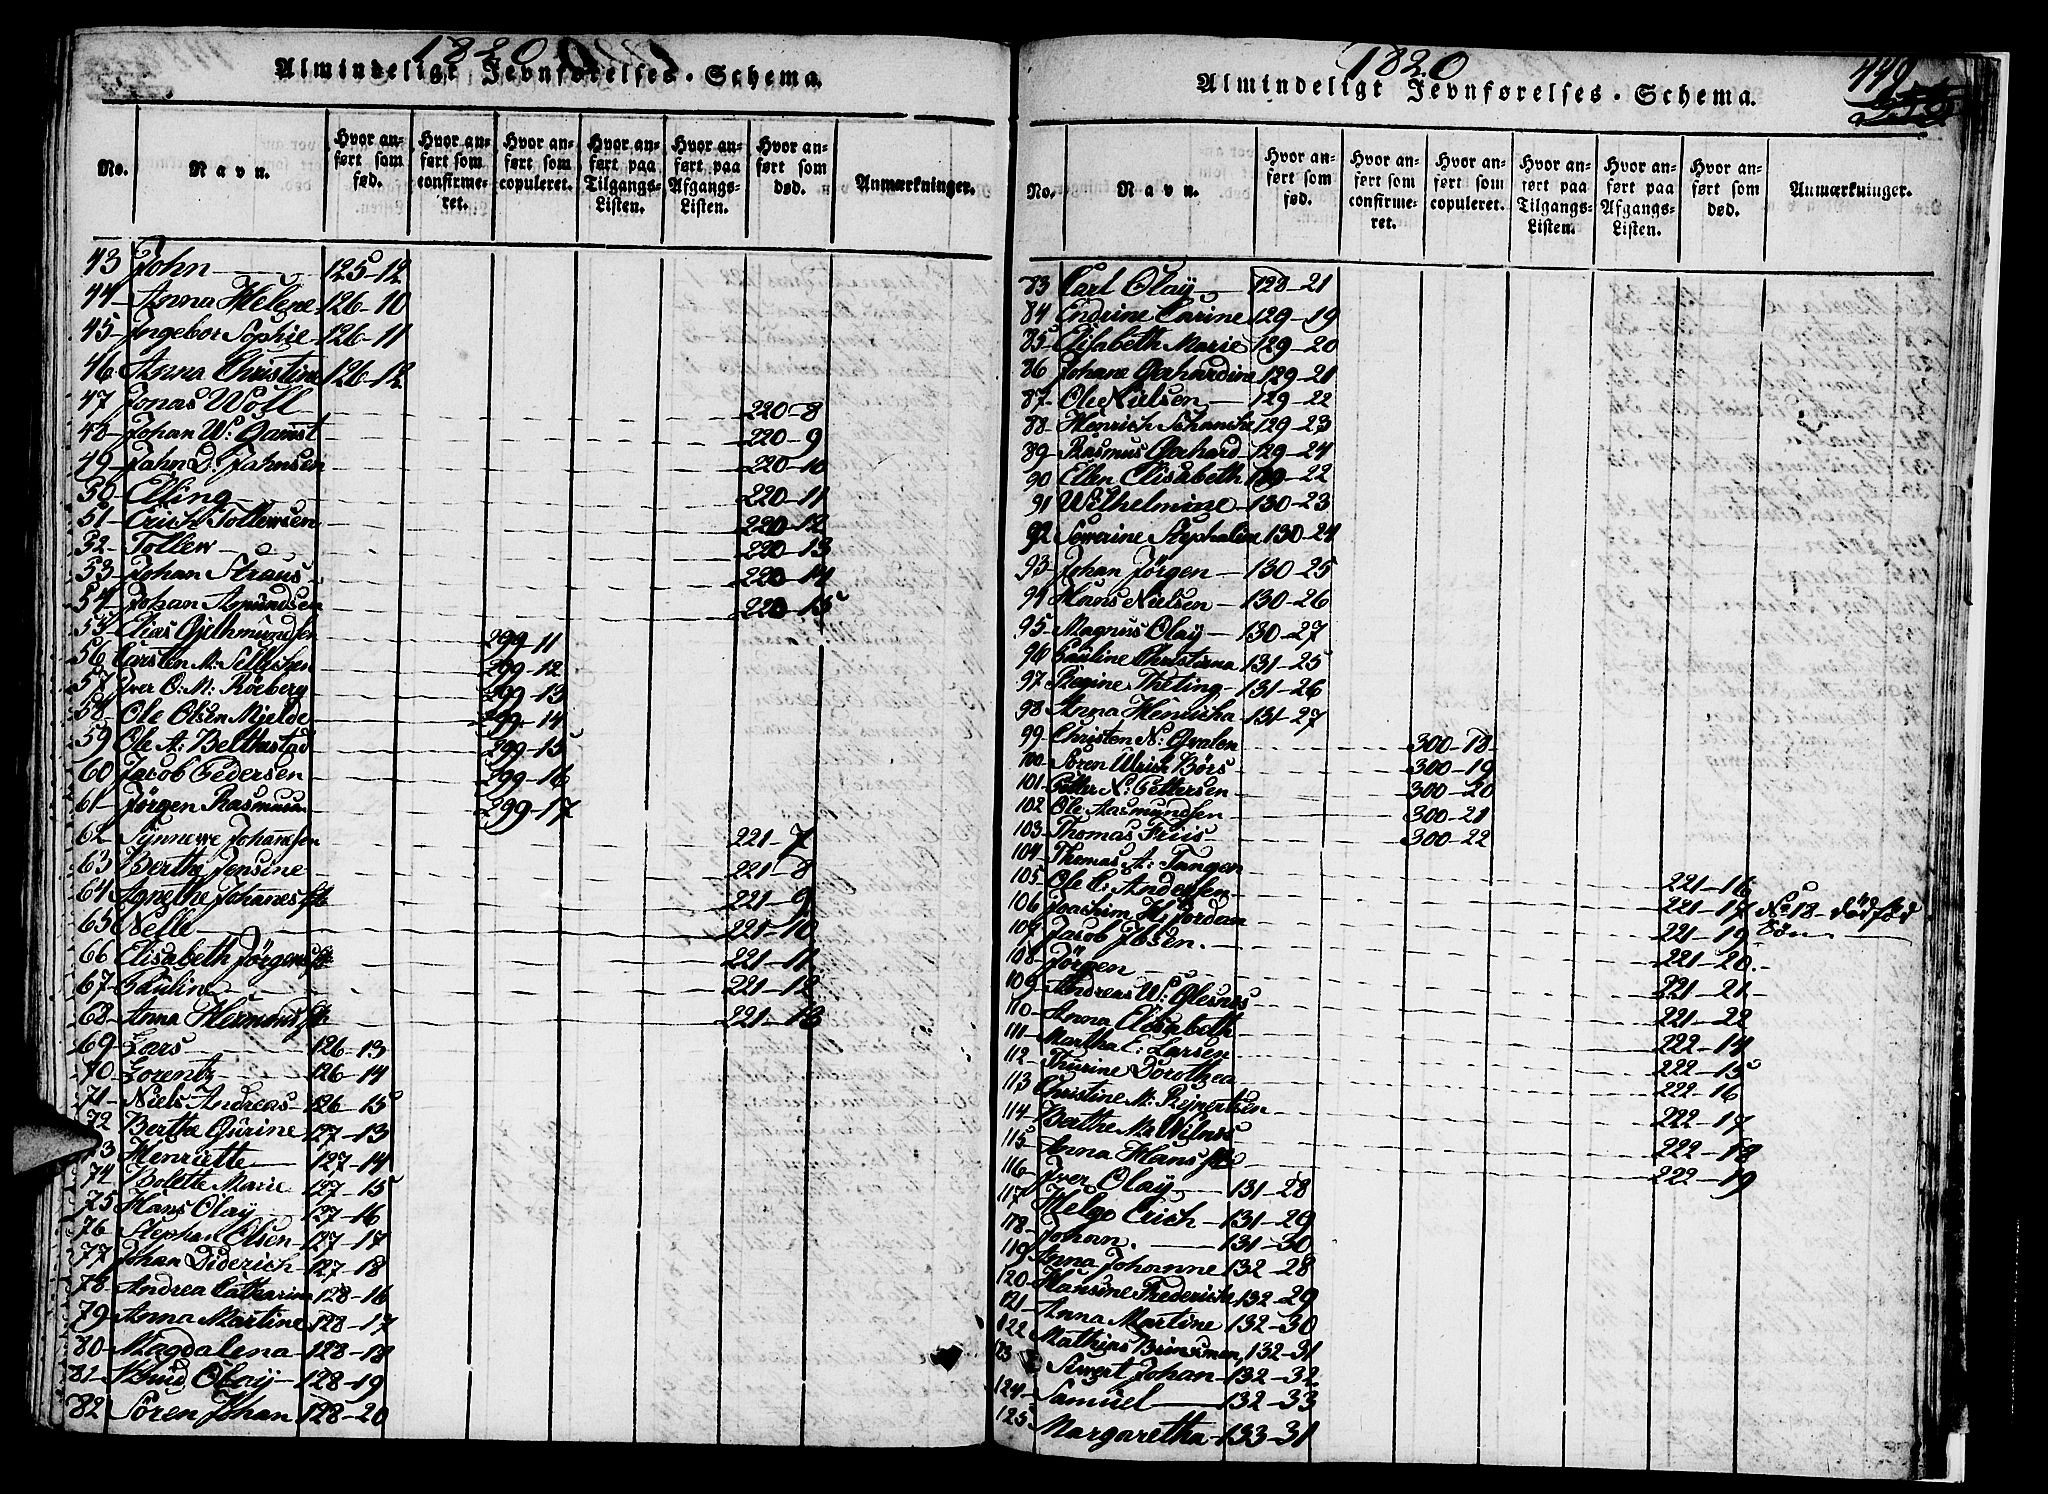 1820
Almindeligt Jevnførelses-Schema.
No. Navn. Hvor anført som fød. Hvor anført som confirmeret. Hvor anført som copuleret. Hvor anført paa Tilgangs-Listen. Hvor anført paa Afgangs-Listen. Hvor anført som død. Anmærkninger.
43 John 125-12
44 Anna Helene 126-10
45 Ingebor Sophie 126-11
46 Anna Christine 126-12
47 Jonas Woll 220-8
48 Johan W: 220-9
49 Jahn D: Jahnsen 220-10
50 Elling 220-11
51 Erich Tollewsen 220-12
52 Tollew 220-13
53 Johan Straus 220-14
54 Johan Amundsen 220-15
55 Elias Gjethmundsen 299-11
56 Carsten M: 299-12
57 Iver O: M: Röeberg 299-13
58 Ole Olsen Mjelde 299-14
59 Ole A: Belthestad 299-15
60 Jacob Pedersen 299-16
61 Jörgen Rasmusen 299-17
62 Synnewe Johansen 221-7
63 Berthe Jensine 221-8
64 Agnethe Johannes 221-9
65 Nelle 221-10
66 Elisabeth Jörgens 221-11
67 Pauline 221-12
68 Anna 221-13
69 Lars 126-13
70 Lorentz 126-14
71 Niels Andreas 126-15
72 Berthe Gurine 127-13
73 Henriette 127-14
74 Bolette Marie 127-15
75 Hans Olay 127-16
76 Stephan Olsen 127-17
77 Johan Diderich 127-18
78 Andrea Catharina 128-16
79 Anna Martine 128-17
80 Magdalena 128-18
81 Knud Olay 128-19
82 Sören Johan 128-20
1820
449
Almindeligt Jevnførelses-Schema.
No. Navn. Hvor anført som fød. Hvor anført som confirmeret. Hvor anført som copuleret. Hvor anført paa Tilgangs-Listen. Hvor anført paa Afgangs-Listen. Hvor anført som død. Anmærkninger.
83 Carl Olay 128-21
84 Endrine Carine 129-19
85 Elisabeth Marie 129-20
86 Johane Gerhardine 129-21
87 Ole Nielsen 129-22
88 Henrich Schanche 129-23
89 Rasmus Gerhard 129-24
90 Ellen Elisabeth 129-22
91 Wilhelmine 130-23
92 Severine 130-24
93 Johan Jörgen 130-25
94 Hans Nielsen 130-26
95 Magnus Olay 130-27
96 Pauline Christiana 131-25
97 Regine Theting 131-26
98 Anna Henricha 131-27
99 Christen N: Qvalen 300-18
100 Sören Ulrich Börs 300-19
101 Petter N: Pettersen 300-20
102 Ole Aasmundsen 300-21
103 Thomas Friis 300-22
104 Thomas A: Tangen 221-16
105 Ole C: Andersen 221-17 No 18 dödföd
106 Joachim H: Jordan 221-19 Sön
107 Jacob Ibsen 221-20
108 Jörgen 221-21
109 Andreas W: 221-22
110 Anna Elisabeth 222-14
111 Martha E: Larsen 222-15
112 Thurine Dorothea 222-16
113 Christine M: Rejnertsen 222-17
114 Berthe M: 222-18
115 Anna Hans 222-19
116 Iver Olay 131-28
117 Helge Erich 131-29
118 Johan 131-30
119 Anna Johanne 132-28
120 Hansine Frederiche 132-29
121 Anna Martine 132-30
122 Mathias 132-31
123 Siwert Johan 132-32
124 Samuel 132-33
125 Margaretha 133-31